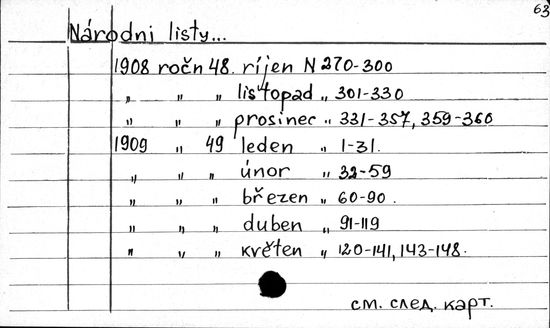 63
Národni listy...
1908 ročn 48. ríjen N 270-300
„ „ „ listopad „ 301-330
„ „ „ prosinec „ 331-357, 359-360
1909 „ 49 leden „ 1-31.
„ „ „ únor „ 32-59
„ „ „ březen „ 60-90.
„ „ „ duben „ 91-119
„ „ „ květen „ 120-141, 143-148.
см. след. карт.